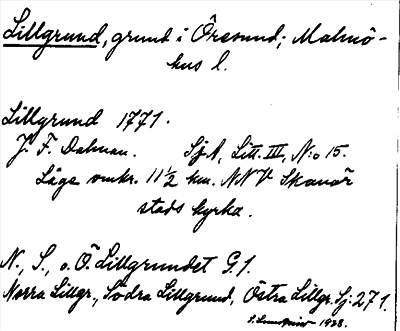 Lillgrund, grund i Öresund; Malmö-
hus l.
Lillgrund 1771.
J. F. Dalman. SjA, Litt. III, N:o 15.
Läge omkr. 11½ km. NNV Skanör
stads kyrka.
N., S., o. Ö. Lillgrundet G.1.
Norra Lillgr., Södra Lillgrund, Östra Lillgr. Sj: 271.
1928.